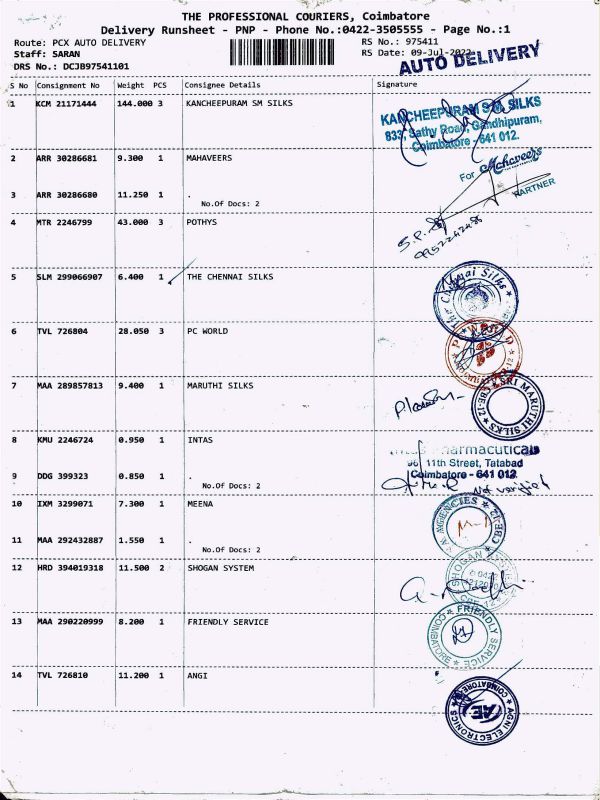 THE PROFESSIONAL COURIERS, Coimbatore
Delivery Runsheet - PNP - Phone No.:0422-3505555 - Page No.:1
Route: PCX AUTO DELIVERY
RS No.: 975411
Staff: SARAN
RS Date: 09-Jul-2022
AUTO DELIVERY
DRS No.: DCJB97541101
S No Consignment No Weight PCS Consignee Details Signature
1 KCM 21171444 144.000 3 KANCHEEPURAM SM SILKS
KANCHEEPURAM S.M. SILKS
833, Sathy Road, Gandhipuram,
Coimbatore - 641 012.
2 ARR 30286681 9.300 1 MAHAVEERS
For Mahaveers
PARTNER
3 ARR 30286680 11.250 1 .
No.Of Docs: 2
4 MTR 2246799 43.000 3 POTHYS
5 SLM 299066907 6.400 1 THE CHENNAI SILKS
The Chennai Silks
6 TVL 726804 28.050 3 PC WORLD
7 MAA 289857813 9.400 1 MARUTHI SILKS
SRI MARUTHI SILKS CBE-12
8 KMU 2246724 0.950 1 INTAS
Intas Pharmaceuticals
96, 11th Street, Tatabad
Coimbatore - 641 012
Not verified
9 DDG 399323 0.850 1 .
No.Of Docs: 2
10 IXM 3299071 7.300 1 MEENA
AGENCIES CBE-12
11 MAA 292432887 1.550 1 .
No.Of Docs: 2
12 HRD 394019318 11.500 2 SHOGAN SYSTEM
SHOGAN
13 MAA 290220999 8.200 1 FRIENDLY SERVICE
FRIENDLY SERVICE COIMBATORE
14 TVL 726810 11.200 1 ANGI
AGNI ELECTRONICS COIMBATORE
AE